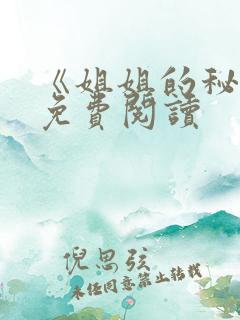 《姐姐的秘
免費閱讀
倪思弦
未經同意禁止轉載